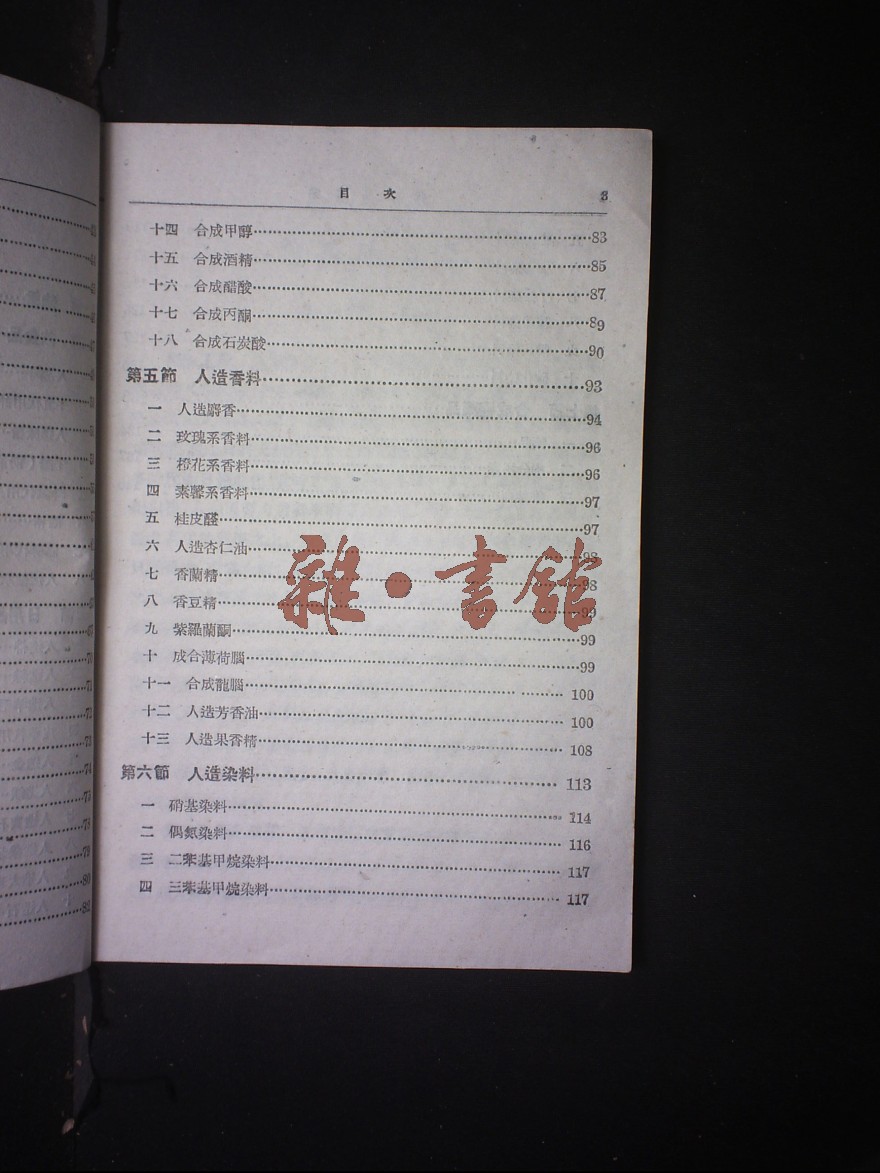 目 次 3
十四 合成甲醇 83
十五 合成酒精 85
十六 合成醋酸 87
十七 合成丙酮 89
十八 合成石炭酸 90
第五節 人造香料 93
一 人造麝香 94
二 玫瑰系香料 96
三 橙花系香料 96
四 素馨系香料 97
五 桂皮醛 97
六 人造杏仁油 98
七 香蘭精 98
八 香豆精 99
九 紫羅蘭酮 99
十 成合薄荷腦 99
十一 合成龍腦 100
十二 人造芳香油 100
十三 人造果香精 108
第六節 人造染料 113
一 硝基染料 114
二 偶氮染料 116
三 二苯基甲烷染料 117
四 三苯基甲烷染料 117
雜·書館
70
71
72
73
74
75
78
79
80
82